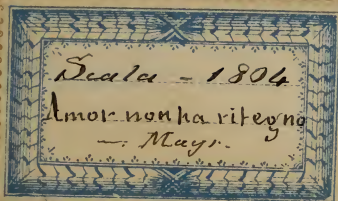 Scala - 1804
Amor non ha ritegno
-: Mayr.